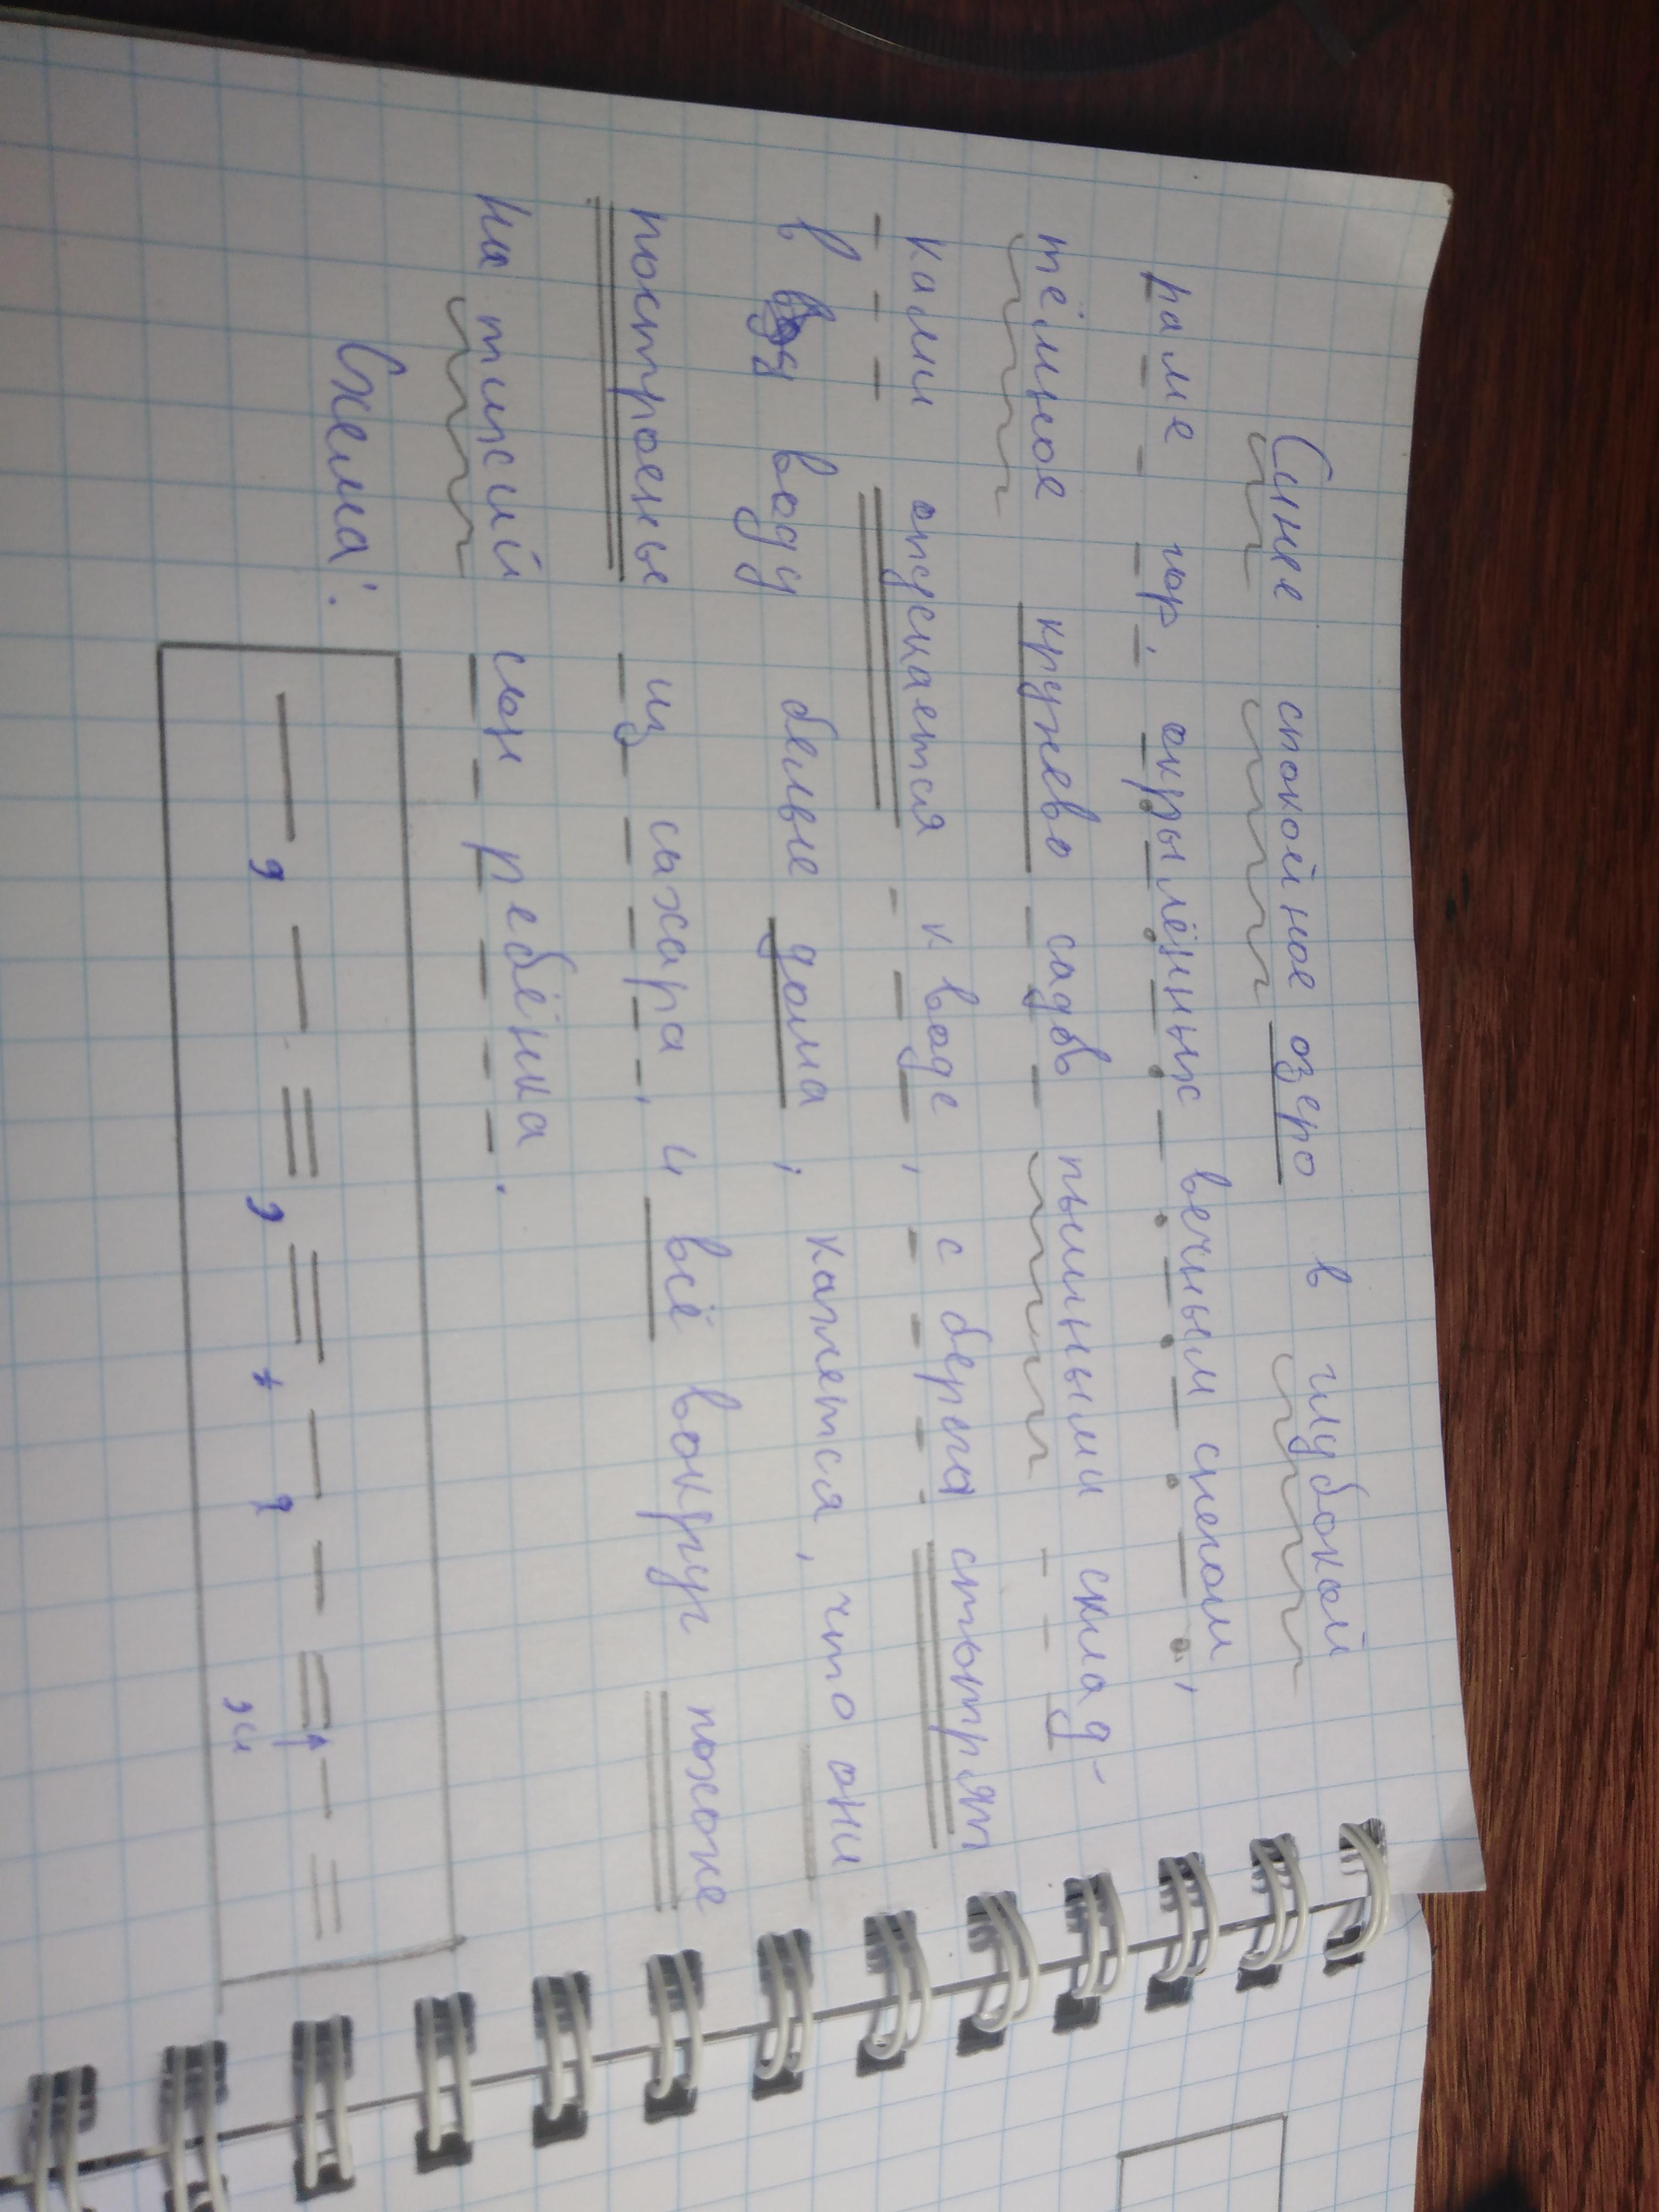 Синее спокойное озеро в глубокой
раме гор, окрылённых вечным снегом,
тёмное кружево садов пышными склад-
ками опускается к воде, с берега смотрят
в воду белые дома, кажется, что они
построены из сахара, и всё вокруг похоже
на тихий сон ребёнка.
Схема: